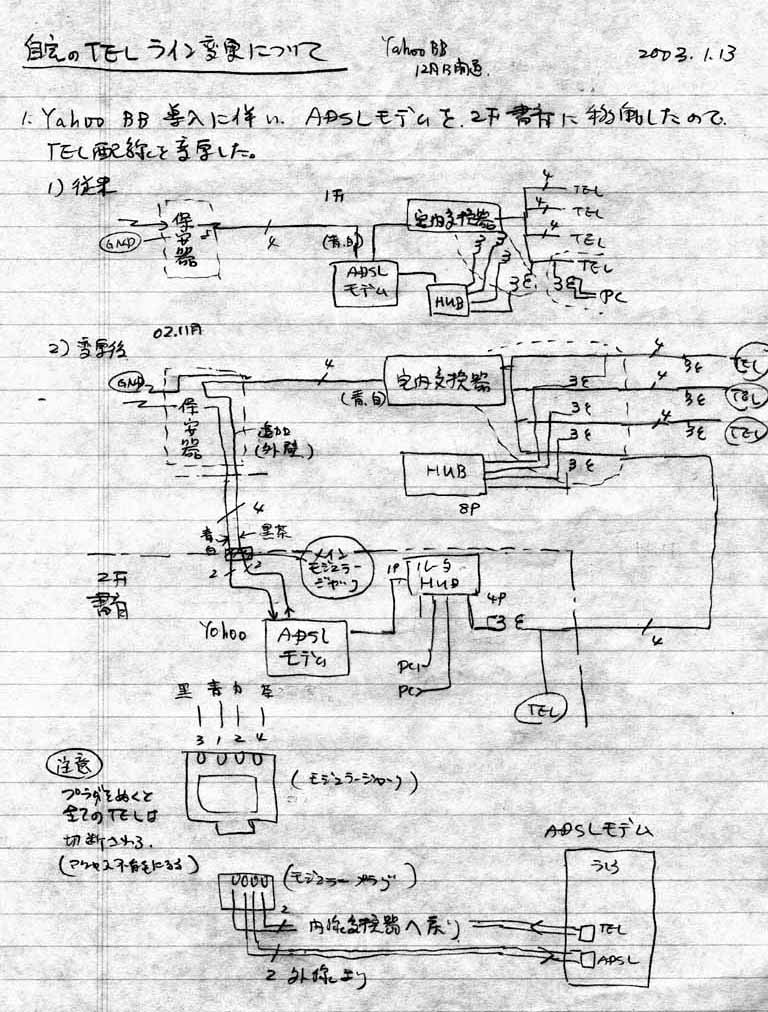 自宅のTELライン変更について
Yahoo BB
12月 開通.
2003.1.13
1. Yahoo BB 導入に伴い、ADSLモデムを、2F 書斎に移動したので、
TEL配線を変更した。
1) 従来
保安器
GND
4
1F
(青.白)
ADSL
モデム
宅内交換器
HUB
4
TEL
4
TEL
4
TEL
TEL
PC
2) 変更後
02.11月
GND
保安器
追加
(外壁)
4
(青.白)
宅内交換器
HUB
8P
4
TEL
4
TEL
4
TEL
4
青
白
黒茶
2
2
メイン
モジュラー
ジャック
2F
書斎
Yahoo
ADSL
モデム
1P
ルータ
HUB
4P
PC1
PC2
TEL
4
黒 青 白 茶
3 1 2 4
(モジュラージャック)
注意
プラグをぬくと
全てのTELは
切断される.
(アクセス不能になる)
(モジュラープラグ)
2
内線交換器へ戻り
2 外線より
ADSLモデム
うしろ
TEL
ADSL